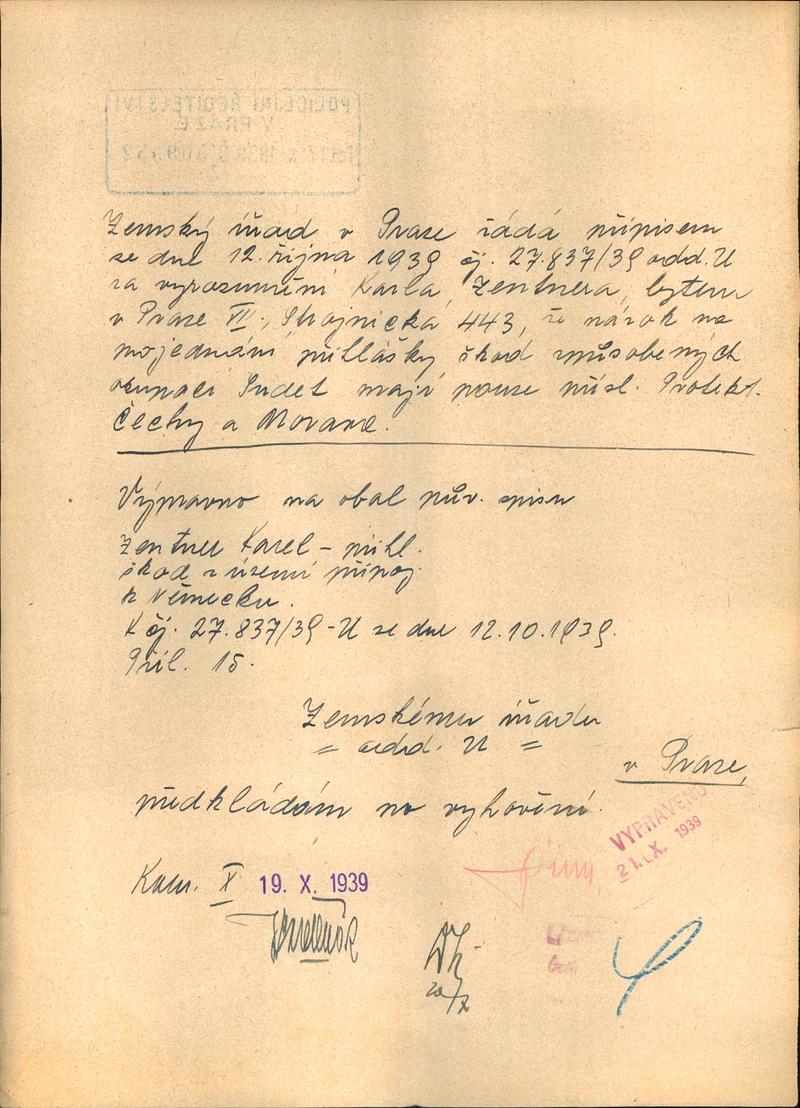 POLICEJNÍ ŘEDITELSTVÍ
V PRAZE
Zemský úřad v Praze žádá přípisem
ze dne 12. října 1939 čj. 27.837/39 odd. U
za vyrozumění Karla Zentnera, bytem
v Praze VII., Strojnická 443, že nárok na
projednání přihlášky škod způsobených
okupací Sudet mají pouze přísl. Protekt.
Čechy a Morava.
Výpravno na obal pův. spisu
Zentner Karel - přihl.
škod z území připoj.
k Německu.
K čj. 27.837/39 - U ze dne 12.10.1939.
Příl. 15.
Zemskému úřadu
= odd. U =
v Praze,
předkládám po vyhovění.
VYPRAVENO
21. X. 1939
Kom. X 19. X. 1939
20/X